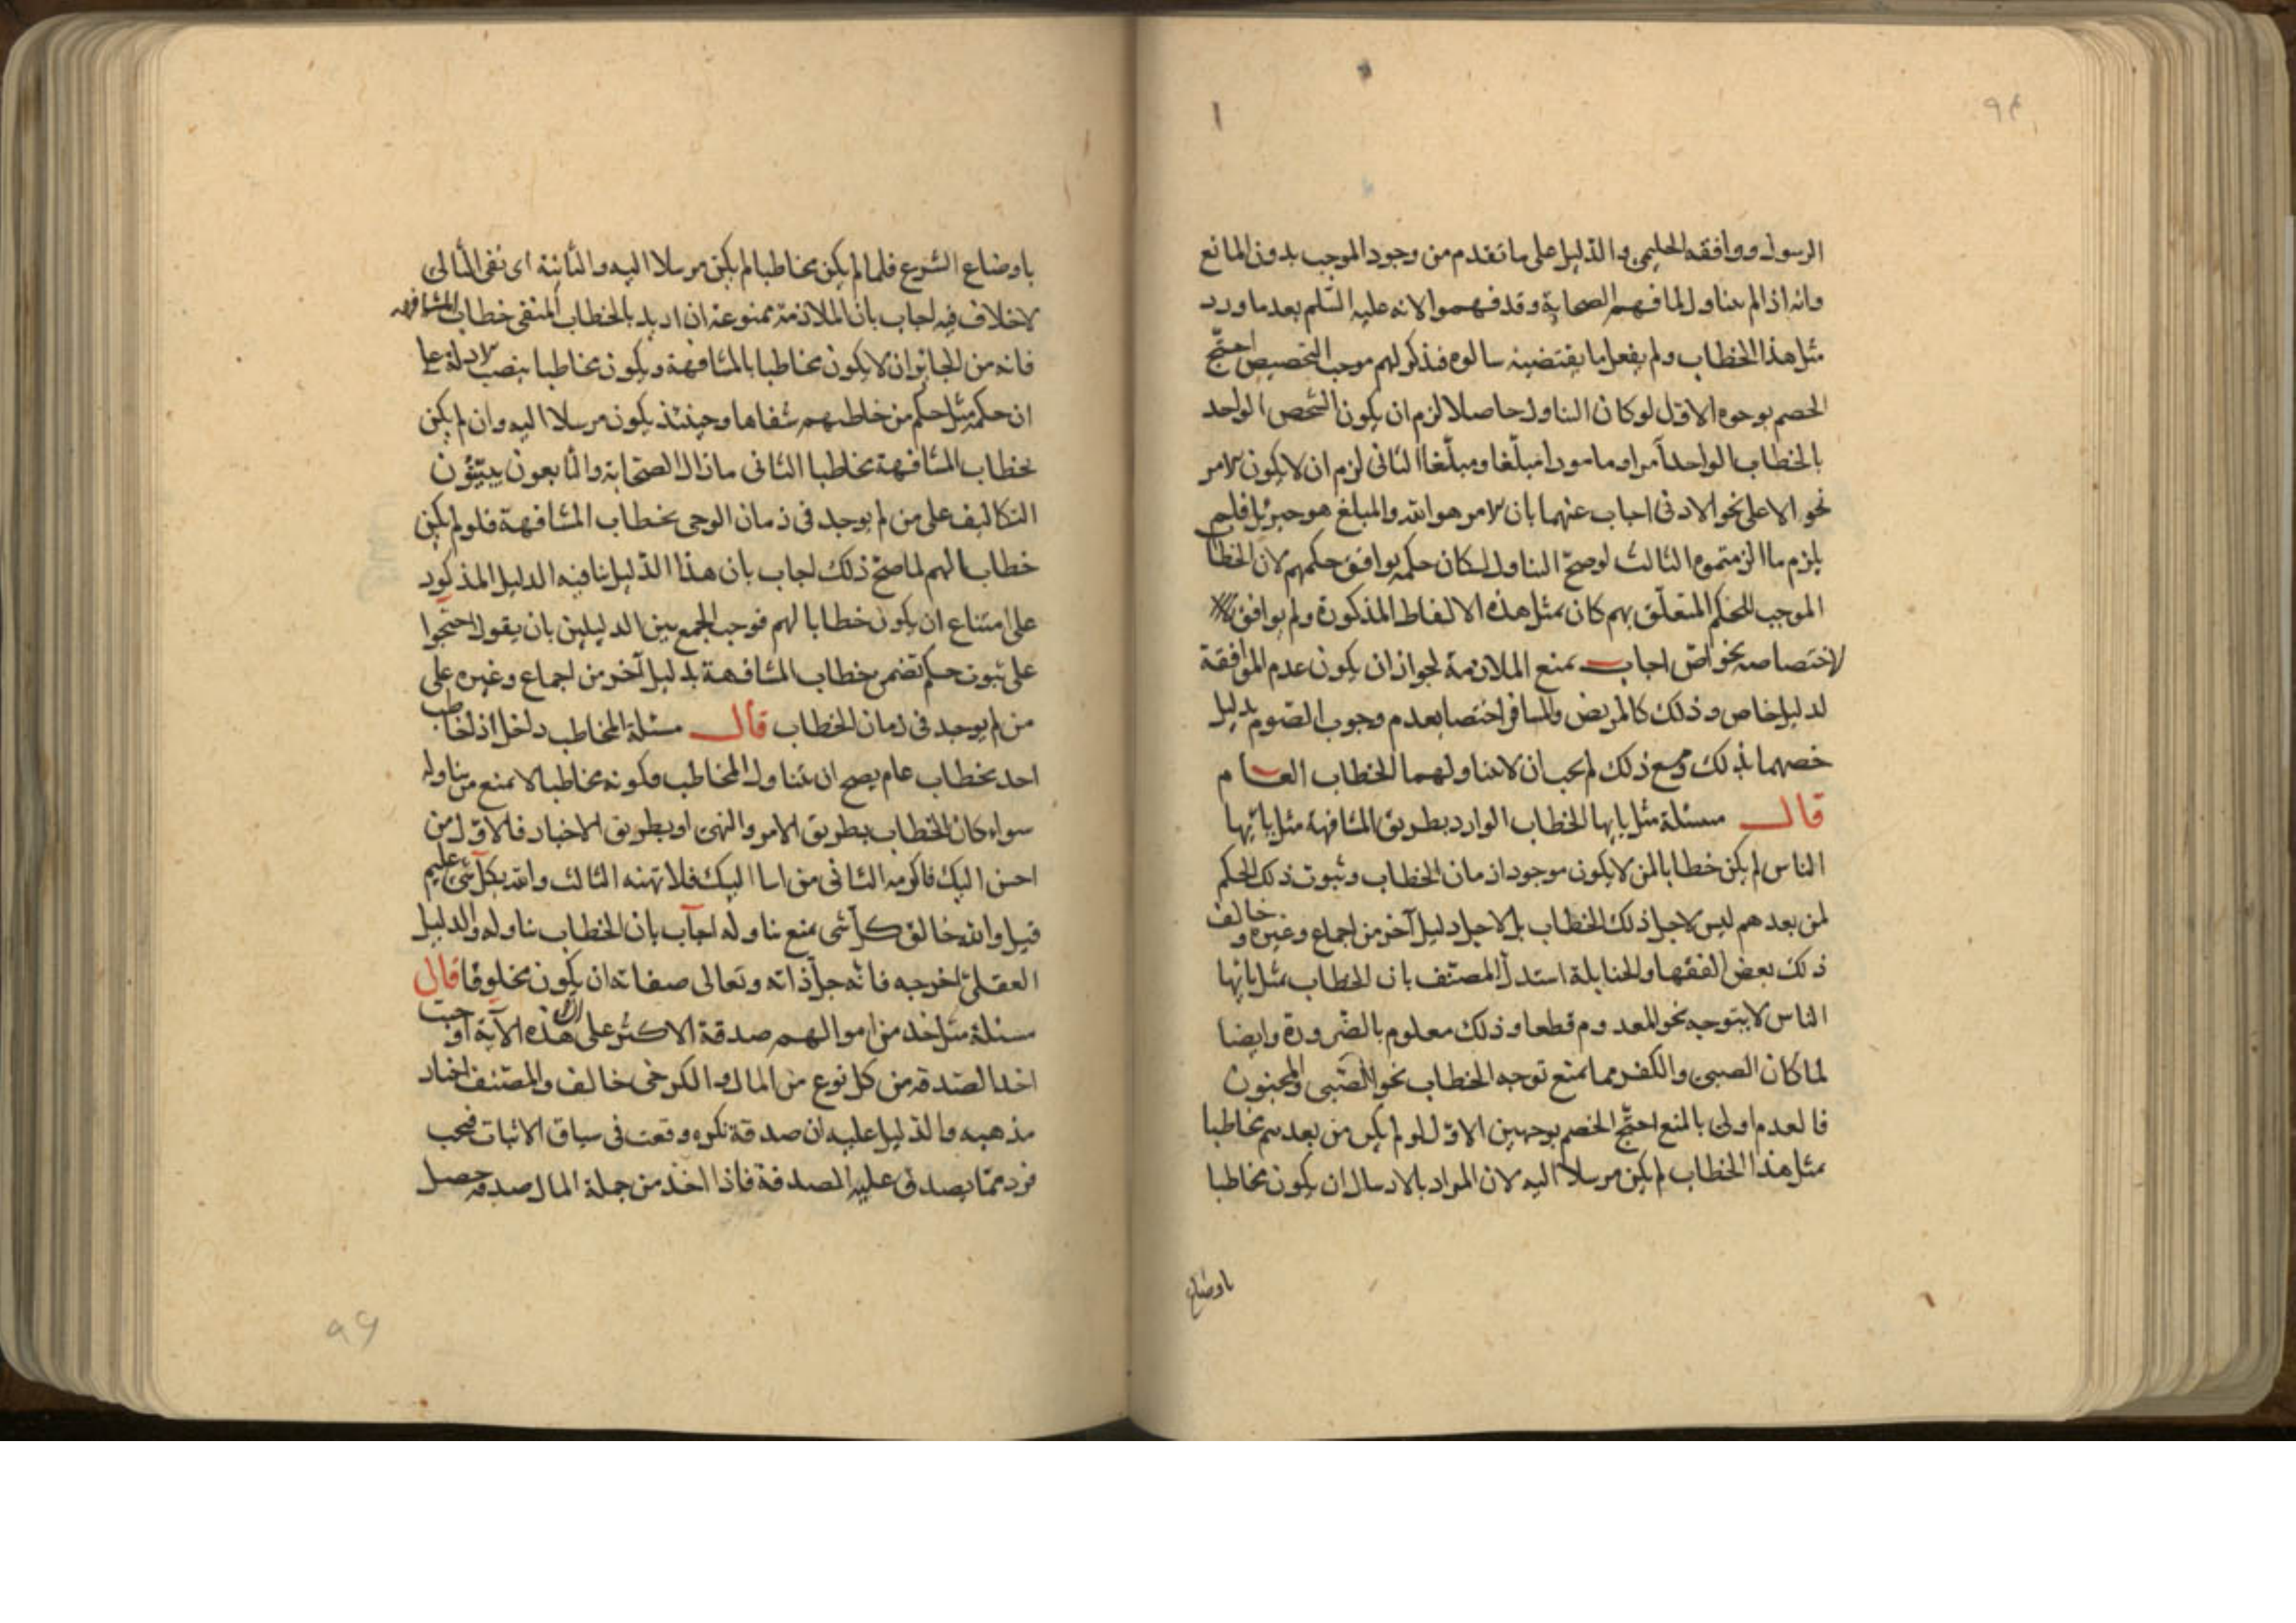 الرسول ووافقه الحليمي والدليل على ما تقدم من وجود الموجب بدون المانع
وانه اذا لم يتناول لما فهم الصحابة وقد فهموا لانه عليه السلم بعد ما ورد
مثل هذا الخطاب ولم يفعل ما يقتضيه سالوه فذكر لهم موجب التخصيص احتج
الخصم بوجوه الاول لو كان التناول حاصلا لزم ان يكون الشخص الواحد
بالخطاب الواحد آمرا ومامورا مبلغا ومبلغا الثانى لزم ان لا يكون الامر
نحو الاعلى نحو الادنى اجاب عنهما بان الامر هو الله والمبلغ هو جبرئيل فلم
يلزم ما الزمتموه الثالث لو صح التناول لكان حكمه يوافق حكمهم لان الخطاب
الموجب للحكم المتعلق بهم كان بمثل هذه الالفاظ المذكورة ولم يوافق
لاختصاصه بخواص اجاب بمنع الملازمة لجواز ان يكون عدم الموافقة
لدليل خاص وذلك كالمريض والمسافر اختصا بعدم وجوب الصوم بدليل
خصهما بذلك ومع ذلك لم يجب ان لا يتناولهما الخطاب العام
قال مسئلة مثل يايها الخطاب الوارد بطريق المشافهة مثل يا ايها
الناس لم يكن خطابا لمن لا يكون موجودا زمان الخطاب وثبوت ذلك الحكم
لمن بعدهم ليس لاجل ذلك الخطاب بل لاجل دليل آخر من اجماع وغيره وخالف
ذلك بعض الفقها والحنابلة استدل المصنف بان الخطاب بمثل يا ايها
الناس لا يتوجه نحو المعدوم قطعا وذلك معلوم بالضرورة وايضا
لما كان الصبى والكفر مما يمنع توجه الخطاب نحو الصبى والمجنون
فالعدم اولى بالمنع احتج الخصم بوجهين الاول لو لم يكن من بعدهم مخاطبا
بمثل هذا الخطاب لم يكن مرسلا اليه لان المراد بالارسال ان يكون مخاطبا
باوضاع
باوضاع الشرع فلما لم يكن مخاطبا لم يكن مرسلا اليه والثانية اى نفى التالى
لا خلاف فيه اجاب بان الملازمة ممنوعة ان اريد بالخطاب المنفى خطاب المشافهه
فانه من الجائز ان لا يكون مخاطبا بالمشافهة ويكون مخاطبا بنصب الادلة على
ان حكمه مثل حكم من خاطبهم شفاها وحينئذ يكون مرسلا اليه وان لم يكن
بخطاب المشافهة مخاطبا الثانى ما زال الصحابة والتابعون يبينون
التكاليف على من لم يوجد فى زمان الوحى بخطاب المشافهة فلو لم يكن
خطابا لهم لما صح ذلك اجاب بان هذا الدليل ينافيه الدليل المذكور
على امتناع ان يكون خطابا لهم فوجب الجمع بين الدليلين بان يقول احتجوا
على ثبوت حكم تضمن خطاب المشافهة بدليل آخر من اجماع وغيره على
من لم يوجد فى زمان الخطاب قال مسئلة المخاطب داخل اذا خاطب
احد بخطاب عام يصح ان يتناول المخاطب فكونه مخاطبا لا يمنع من تناوله
سواء كان الخطاب بطريق الامر والنهى او بطريق الاخبار فالاول من
احسن اليك فاكرمه الثانى من اسا اليك فلا تهنه الثالث والله بكل شى عليم
قيل والله خالق كل شى يمنع تناوله اجاب بان الخطاب يناوله والدليل
العقلى اخرجه فانه جل ذاته وتعالى صفاته ان يكون مخلوقا قال
مسئلة مثل خذ من اموالهم صدقة الاكثر على ان هذه الآية اوجبت
اخذ الصدقه من كل نوع من المال والكرخى خالف والمصنف اختار
مذهبه والدليل عليه ان صدقة نكره وقعت فى سياق الاثبات فيجب
فرد مما يصدق عليه الصدقة فاذا اخذ من جملة المال صدقه حصل